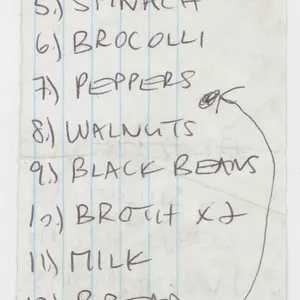 5.) SPINACH
6.) BROCOLLI
7.) PEPPERS
OK
8.) WALNUTS
9.) BLACK BEANS
10.) BROTH x2
11.) MILK
12.) BREAD